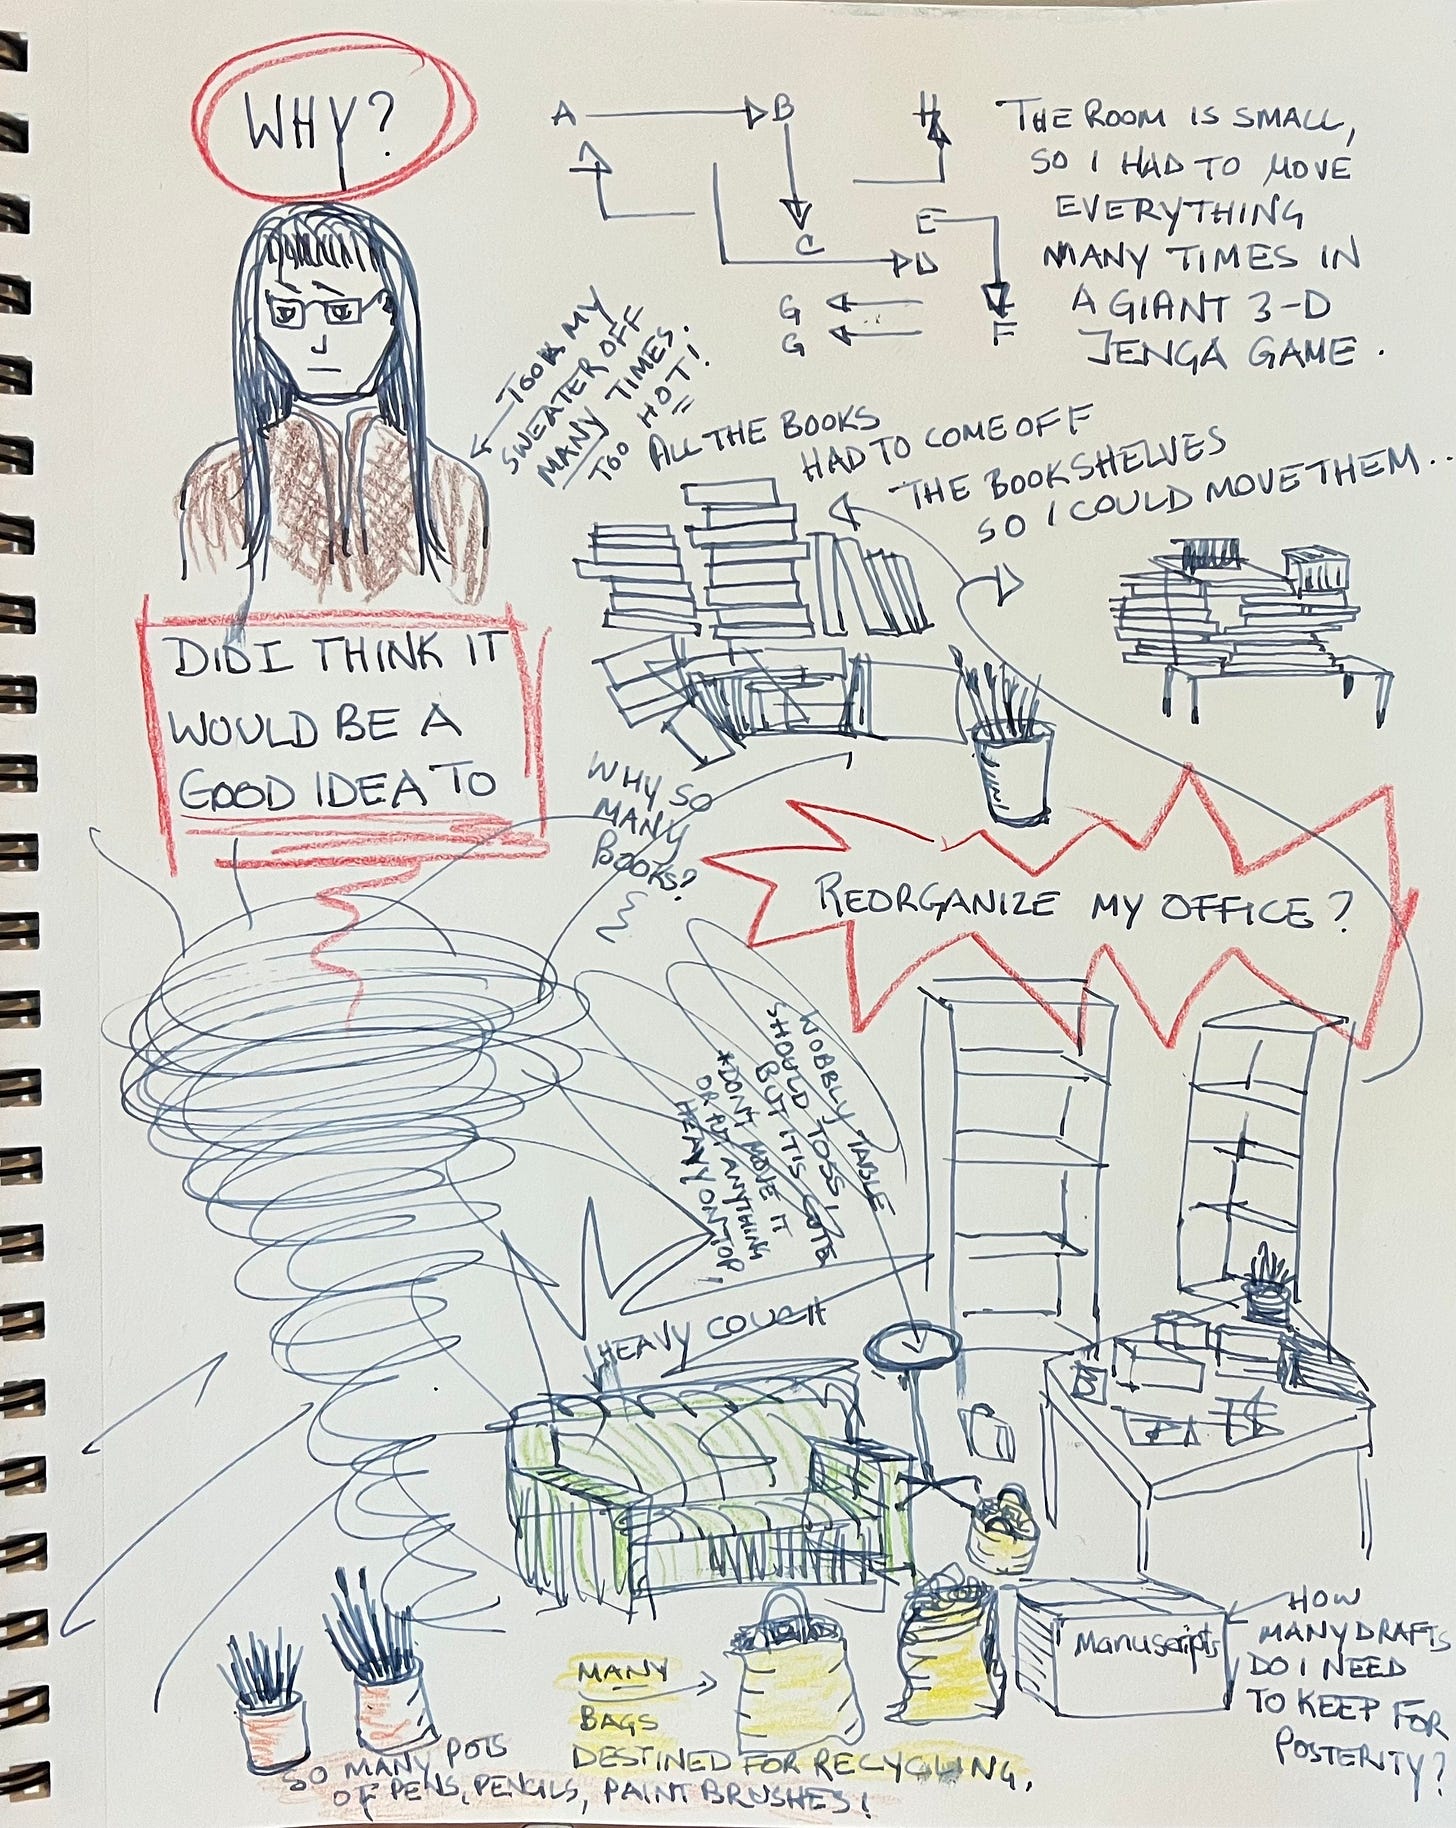 WHY?
A
B
C
D
E
F
G
G
H
THE ROOM IS SMALL,
SO I HAD TO MOVE
EVERYTHING
MANY TIMES IN
A GIANT 3-D
JENGA GAME.
TOOK MY
SWEATER OFF
MANY TIMES.
TOO HOT!
ALL THE BOOKS
HAD TO COME OFF
THE BOOKSHELVES
SO I COULD MOVE THEM...
DID I THINK IT
WOULD BE A
GOOD IDEA TO
WHY SO
MANY
BOOKS?
REORGANIZE MY OFFICE?
WOBBLY TABLE
SHOULD TOSS,
BUT IT IS CUTE
*DON'T MOVE IT
OR PUT ANYTHING
HEAVY ON TOP,
HEAVY COUCH
Manuscripts
HOW
MANY DRAFTS
DO I NEED
TO KEEP FOR
POSTERITY?
MANY
BAGS
DESTINED FOR RECYCLING.
SO MANY POTS
OF PENS, PENCILS, PAINT BRUSHES!